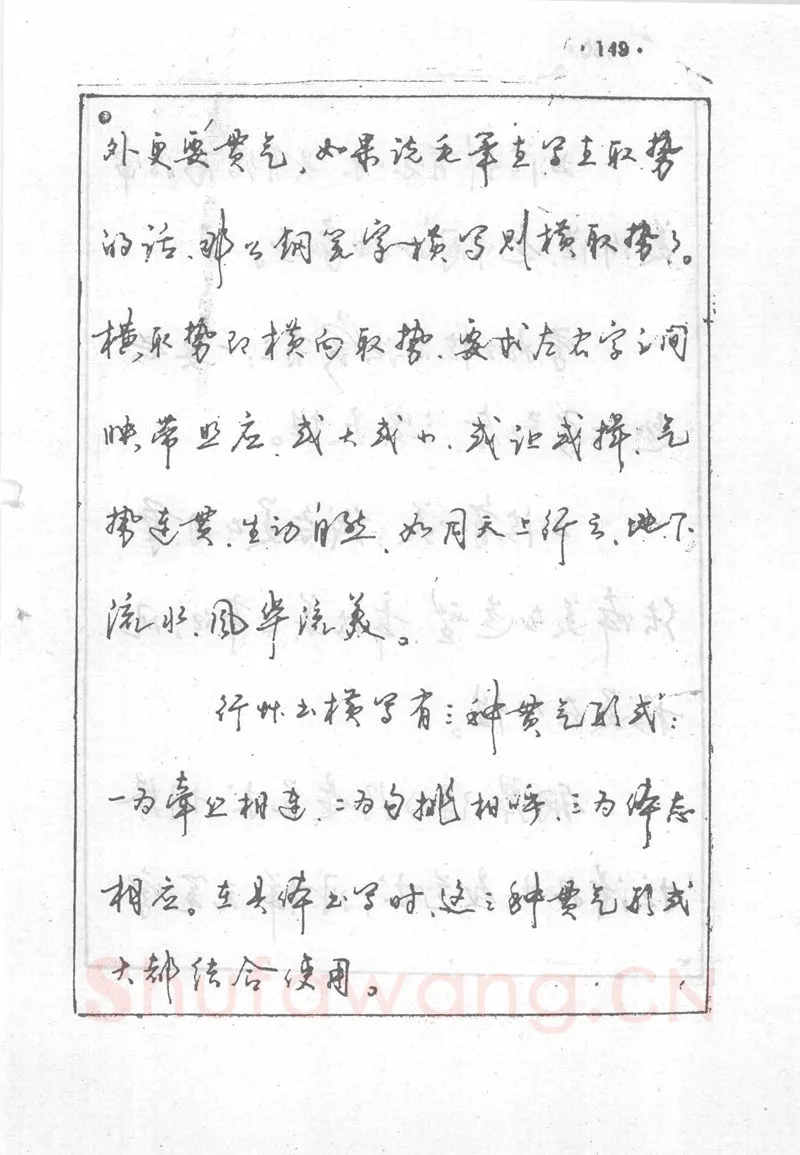 ·149·
外更要贯气。如果说毛笔直写直取势
的话、那么钢笔字横写则横取势了。
横取势即横向取势、要求左右字之间
映带照应、或大或小、或让或揖、气
势连贯、生动自然、如同天上行云、地下
流水、风华流美。
行草书横写有三种贯气形式：
一为牵丝相连、二为勾挑相呼、三为体态
相应。在具体书写时、这三种贯气形式
大都结合使用。
Shufawang.CN